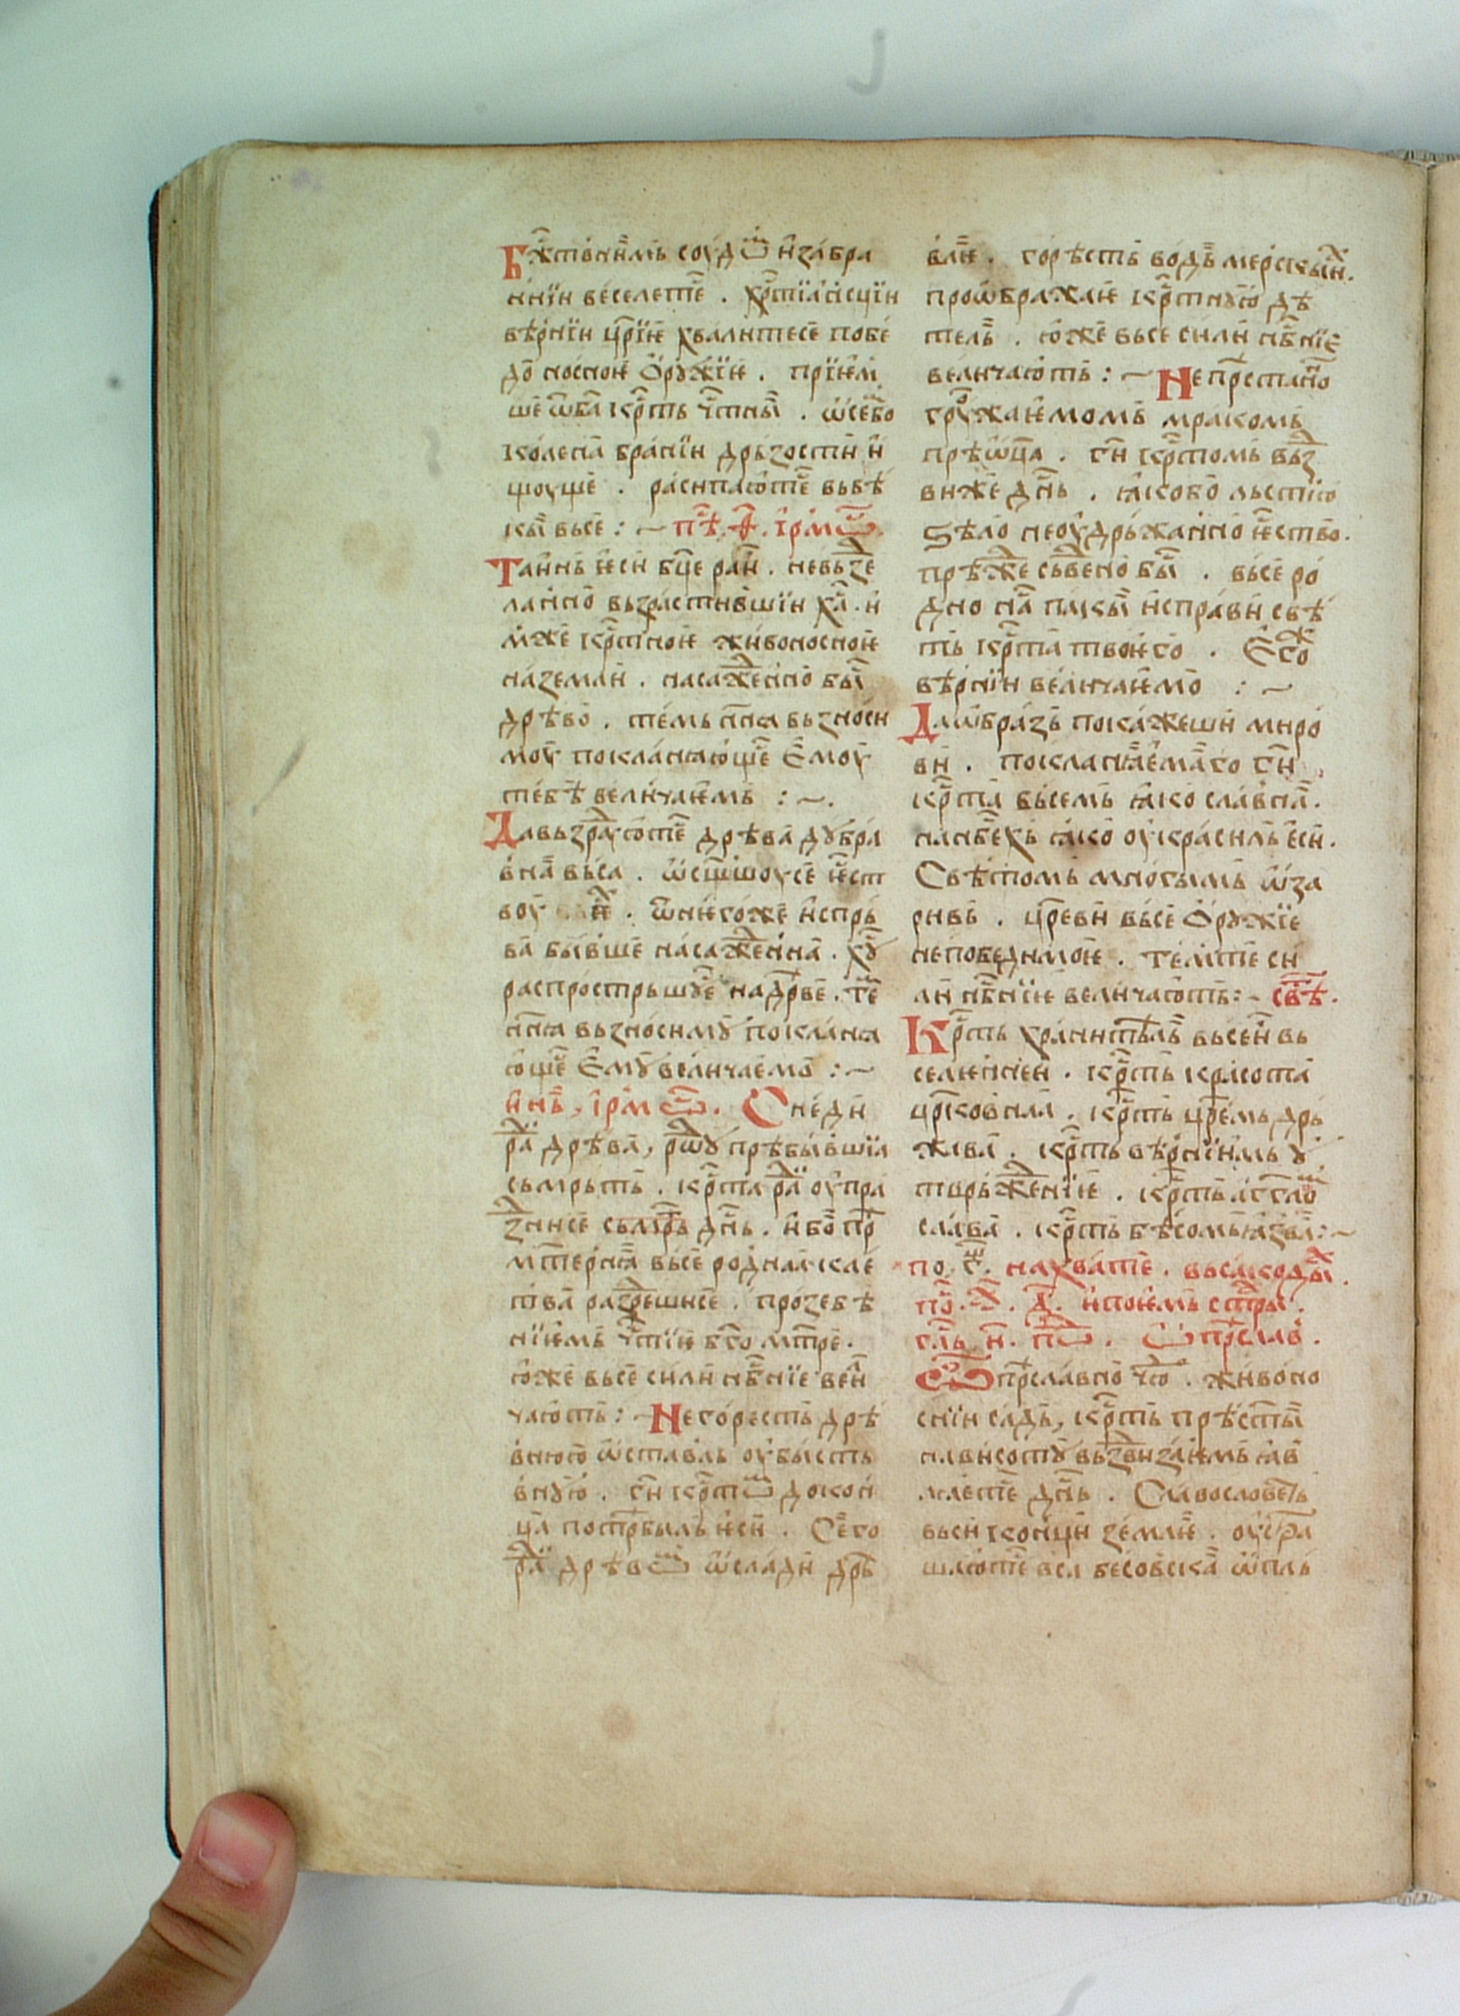 Бж҃ствнимь соудѡⷨ изабра
нїи веселетеⷭ . хрⷭ҇тїансцїи
вѣрнїи цр҃їе хвалитесе побе
до носное ѻрꙋжїе . прїем
ше ѿба крⷭ҇ть чⷭ҇тны . ѡсебⷨо
колена бранїи дрьзости и
щоуще . расипаютсе вьвѣ
кы вьсе : ~ пⷭ҇ѣ . ѳ . ірмѡⷭ .
Таинь еси бц҃е раи . невьзⷣе
ланно вьзрастившїи х҃а . и
мже крⷭ҇тное живоносное
наземли . насажⷣенно бы
дрѣво . темь нн҃ꙗ вьзноси
моу покланꙗюще емоу
тебѣ величаемь : ~ .
Давьзраⷣꙋютсе дрѣва дꙋбра
внаꙗ вьса . ѡсщ҃шоусе ест
воу . ѿнегоже испрь
ва бывше насажⷣенна . хꙋⷭ
распрострьшꙋсе надрⷷве . теⷨ
нн҃ꙗ вьзносимꙋ покланꙗ
юще емꙋ величаемо : ~
инь , ірмѡⷭ . Снеди
раⷣи дрѣва , родꙋ прѣбывшїа
сьмрьть . крⷭ҇та раⷣи оупра
зⷣнисе сьмрⷮь днⷭ҇ь . ибо пр
мт҃ернꙗа вьсе роднаа кле
тва разⷣрешисе . прозебѣ
нїемь чⷭ҇тїе бг҃о мт҃ре .
юже вьсе сили нбⷭ҇нїе вели
чають : ~ Негоресть дрѣ
вною ѡставль оубыеть
вною . ги҃ крⷭ҇тѡⷨ докон
ца потрⷷбыль еси . Сего
раⷣи дрѣвѡⷨ ѡслади дрⷷ
вле . горѣсть водь мерскыⷯи .
проѡбражае крⷭ҇тнꙋю дѣ
тель . юже вьсе сили нбⷭ҇нїе
величають : ~ Непрⷷстанно
грꙋжаемомь мракомь
прѣѡца . ги҃ крⷭ҇томь вьзⷣ
виже днⷭ҇ь . ꙗкобо льстїю
ѕѣло неоудрьжанно ество .
прѣжⷣе сьвⷣено бы . вьсе ро
дно на пакы исправи свѣ
ть крⷭ҇та твоего . Егоⷤ
вѣрнїи величаемо : ~
Даѡбразь покажеши миро
ви . покланꙗемаго ги҃
крⷭ҇та вьсемь ꙗко славна .
нанбⷭ҇ехь ꙗко оукрасиль еси .
Свѣтомь многымь ѡза
ривь . цр҃еви вьсе ѻрꙋжїе
непобедимое . темьте си
ли нбⷭ҇нїе величають : ~ свⷮѣ .
Крⷭ҇ть хранитѣль вьсеи вь
селеннеи . крⷭ҇ть красота
цр҃ковнаа . крⷭ҇ть цр҃емь дрь
жава . крⷭ҇ть вѣрнїимь ꙋ
тврьжⷣенїе . крⷭ҇ть агг҃лоⷨ
слава . крⷭ҇ть бѣсомь ꙗзва : ~
нахвалите . вьсакоды
ипоемь стрⷯы .
гл҃ь . и . поⷣ . Ѡпрⷷславⷩ .
Ѽпрⷷславно чюⷣ . живоно
снїи садь , крⷭ҇ть прѣст҃ы
нависотꙋ вьзⷣвизаемь ꙗв
лꙗетсе днⷭ҇ь . Славословеть
вьси конци земли . оустра
шаютсе вса бесовска ѡпль